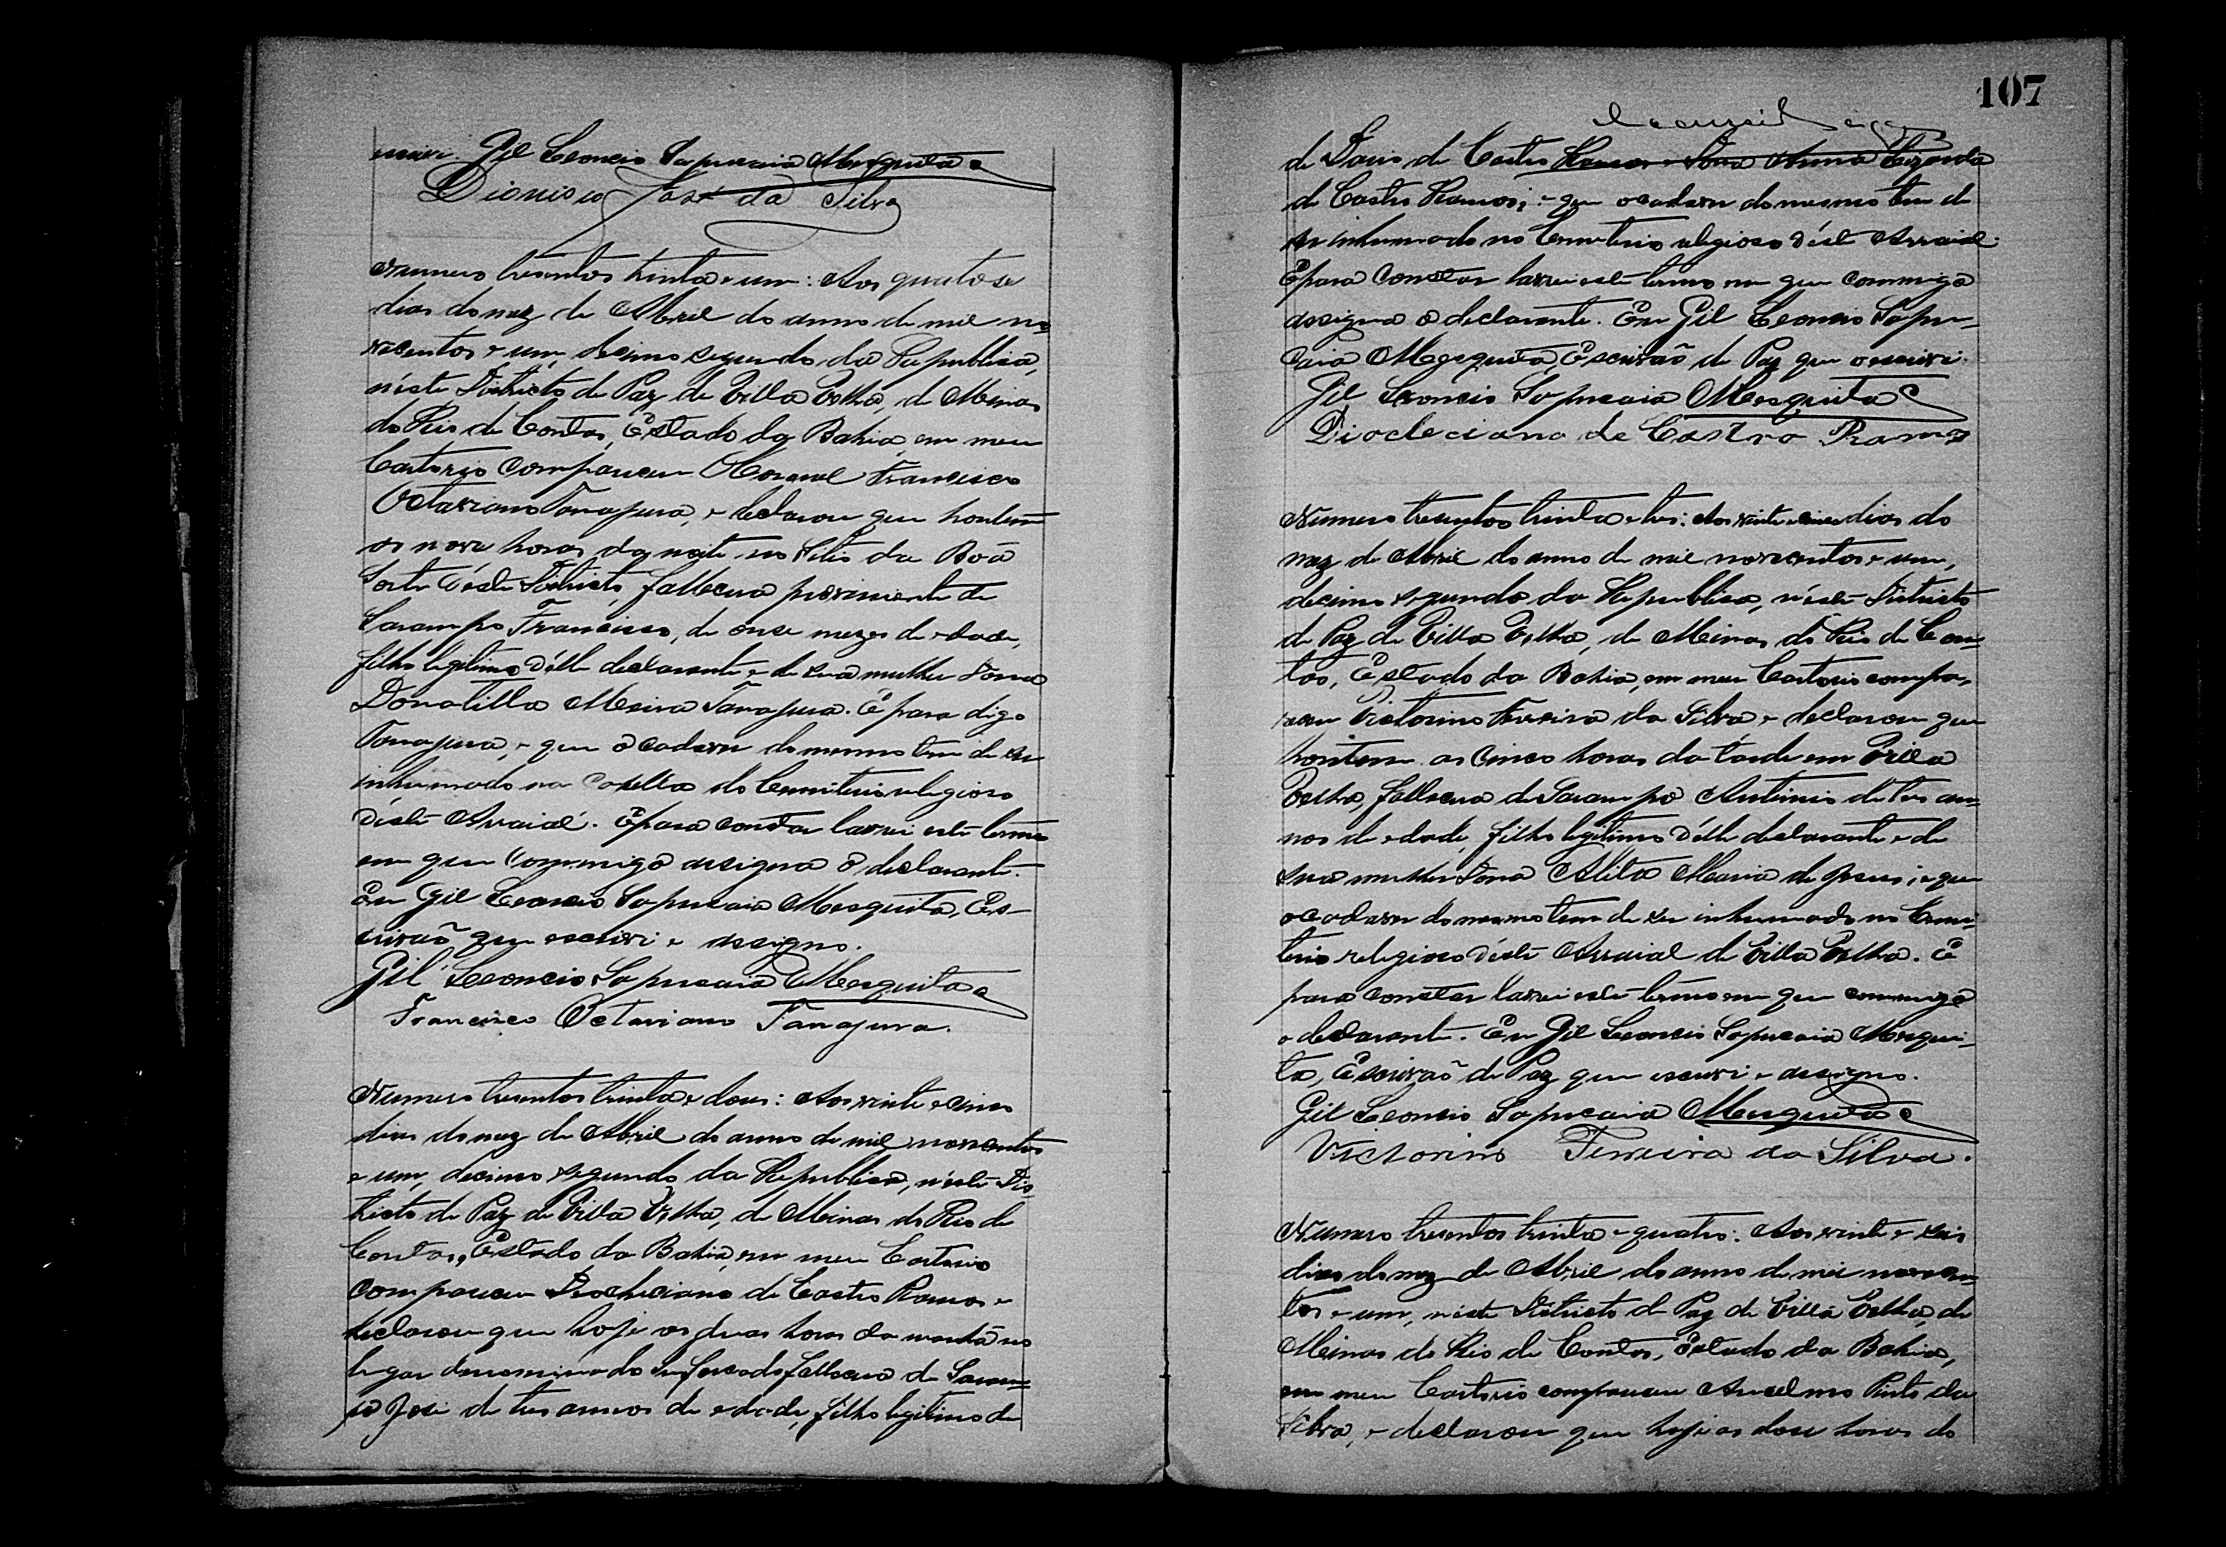 escrivi. Gil Leoncio Sapucaia Mesquita
Dionisio José da Silva
Numero tresentos trinta e um: Aos quatose
dias do mez de Abril do anno de mil no-
vecentos e um, decimo segundo da Republica,
néste Districto de Paz de Villa Velha, de Minas
do Rio de Contas, Estado da Bahia, em meu
Cartorio compareceu Coronel Francisco
Octaviano Tanajura, e declarou que hontem
as nove horas da noite no Sitio da Bôa
Sorte déste Districto, falleceu proveniente de
Sarampo Francisco, de onse mezes de edade,
filho legitimo délle declarante e de sua mulher Dona
Donatilla Meira Tanajura. E para digo
Tanajura, e que o cadaver do mesmo tem de ser
inhumado na Capella do Cemiterio religioso
déste Arraial. E para constar lavrei este termo
em que commigo assigna o declarante.
Eu Gil Leoncio Sapucaia Mesquita, Es-
crivaõ que escrivi e assigno.
Gil Leoncio Sapucaia Mesquita
Francisco Octaviano Tanajura.
Numero tresentos trinta e dous: Aos vinte e cinco
dias do mez de Abril do anno de mil novecentos
e um, decimo segundo da Republica, néste Dis-
tricto de Paz de Villa Velha, de Minas do Rio de
Contas, Estado da Bahia, em meu Cartorio
compareceu Diocleciano de Castro Ramos e
declarou que hoje as duas horas da manhã no
lugar denominado falleceu de Saram-
po José de tres annos de edade, filho legitimo de
107
de Dario de Castro Ramos e Dona Anna
de Castro Ramos; e que o cadaver do mesmo tem de
ser inhumado no Cemiterio religioso déste Arraial.
E para constar lavrei este termo em que commigo
assigna o declarante. Eu Gil Leoncio Sapu-
caia Mesquita, Escrivaõ de Paz que o escrivi.
Gil Leoncio Sapucaia Mesquita
Diocleciano de Castro Ramos
Numero tresentos trinta e tres: Aos vinte e cinco dias do
mez de Abril do anno de mil novecentos e um,
decimo segundo da Republica, néste Districto
de Paz de Villa Velha, de Minas do Rio de Con-
tas, Estado da Bahia, em meu Cartorio compa-
receu Victorino Ferreira da Silva e declarou que
hontem as cinco horas da tarde em Villa
Velha, falleceu de Sarampo Antonio de tres an-
nos de edade, filho legitimo délle declarante e de
sua mulher Dona Alita Maria de Jesus; e que
o cadaver do mesmo tem de ser inhumado no Cemi-
terio religioso déste Arraial de Villa Velha. E
para constar lavrei este termo em que commigo
o declarante. Eu Gil Leoncio Sapucaia Mesqui-
ta, Escrivaõ de Paz que escrivi e assigno.
Gil Leoncio Sapucaia Mesquita
Victorino Ferreira da Silva.
Numero tresentos trinta e quatro: Aos vinte e seis
dias do mez de Abril do anno de mil novecen-
tos e um, néste Districto de Paz de Villa Velha, de
Minas do Rio de Contas, Estado da Bahia,
em meu Cartorio compareceu Anselmo Pinto da
Silva, e declarou que hoje as dose horas do